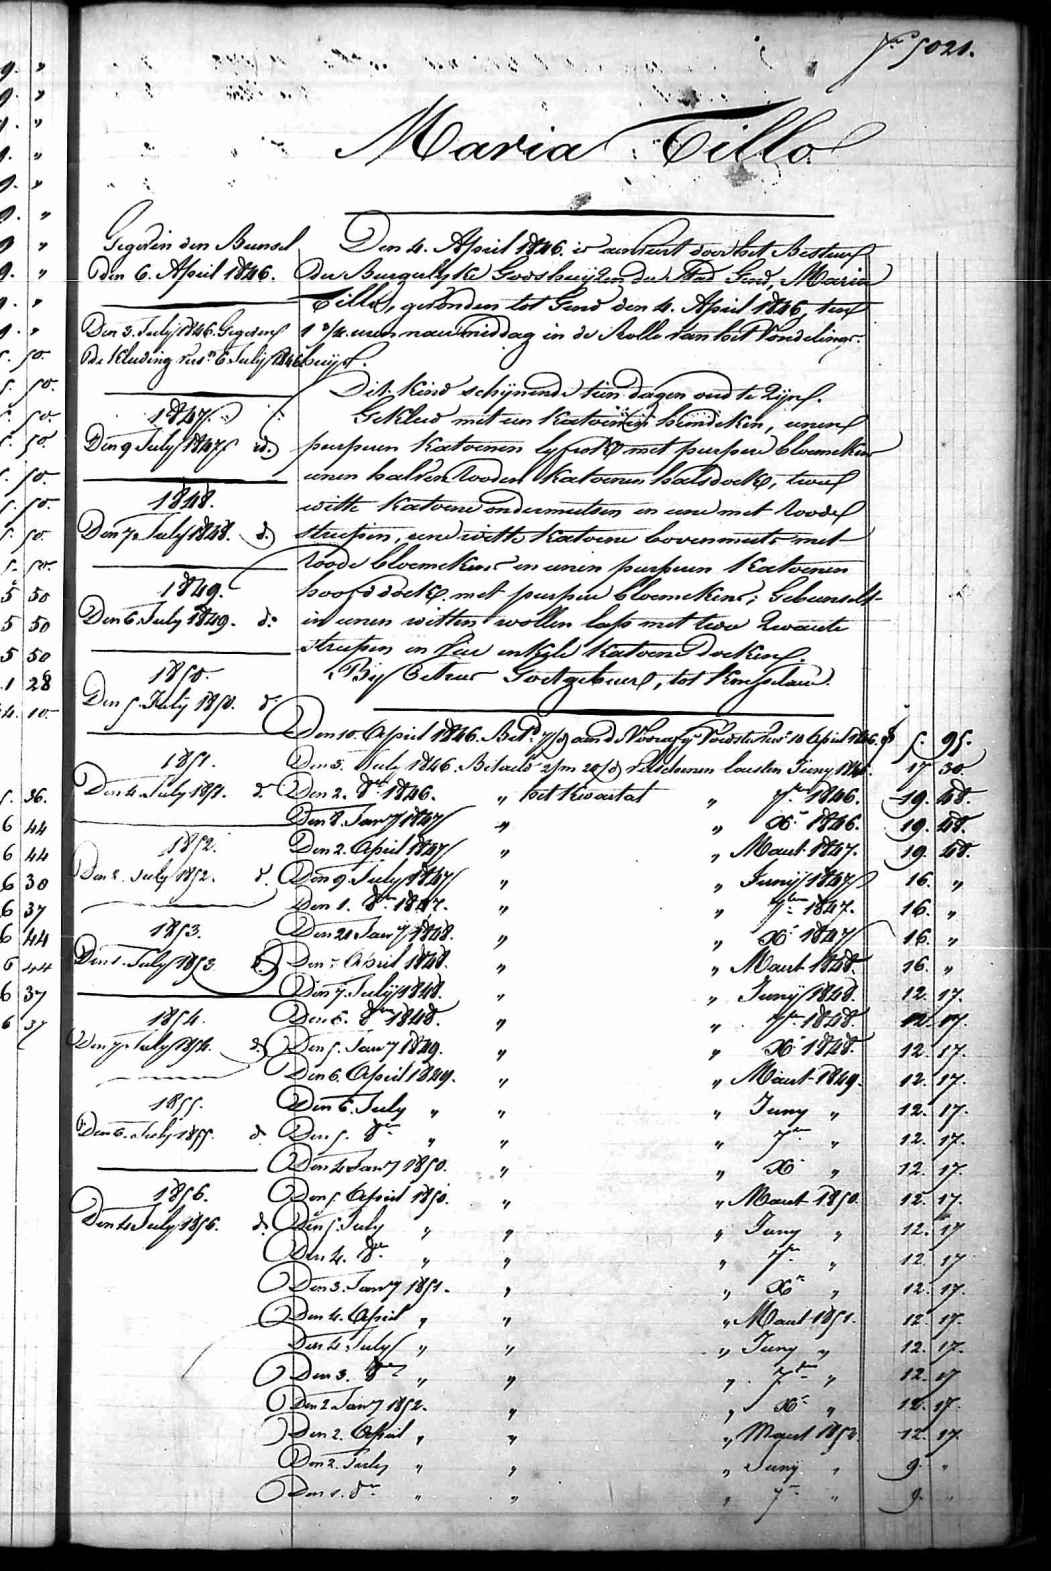 N.º 5021.
Maria Tillo
Gegeven den Bunsel
den 6. April 1846.
Den 3. July 1846. Gegeven
de Kleeding
6 July 1846
1847.
Den 9 July 1847 id.
1848.
Den 7. July 1848. d.
1849.
Den 6. July 1849. d.
1850.
Den 5. July 1850. d.
1851.
Den 4. July 1851. d.
1852.
Den 2. July 1852. d.
1853.
Den 1. July 1853 d.
1854.
Den 7. July 1854. d.
1855.
Den 6. July 1855. d.
1856.
Den 4 July 1856. d.
Den 4. April 1846. is aenveert door het Bestuur
der Burgerlyke Godshuijzen der Stad Gend, Maria
Tillo, gevonden tot Gend den 4. April 1846, ten
1 3/4 uren naermiddag in de Rolle van het Vondelings-
huijs.
Dit kind schijnende tien dagen oud te Zijn.
Gekleed met een katoenen hemdeken, eenen
purpuren katoenen lyfrok met purpere bloemekens
eenen halven rooden katoenen halsdoek, twee
witte katoene ondermutsen en eene met roode
streepen, eene witte katoene bovenmuts met
roode bloemekens en eenen purpuren katoenen
hoofddoek met purpere bloemekens; Gebunselt
in eenen witten wollen lap met twee Zwarte
streepen en vier enkele katoene doeken.
Bij Petrus Goetgebeur, tot Knesselare.
Den 10. April 1846. Bet.d aen de Voedster 10 April 1846. 5. 95.
Den 3. July 1846. Betaelt Junij 1846. 17 30.
Den 2. 8.bre 1846. " het kwartael " 7.bre 1846. 19. 48.
Den 8. Janry 1847 " " X.bre 1846. 19. 48.
Den 2. April 1847 " " Maert 1847. 19 48.
Den 9 July 1847 " " Junij 1847 16. "
Den 1. 8.bre 1847. " " 7.bre 1847. 16. "
Den 21 Janry 1848. " " X.bre 1847 16. "
Den 7 April 1848. " " Maert 1848. 16. "
Den 7. Julij 1848. " " Junij 1848. 12. 17.
Den 6. 8.bre 1848. " " 7.bre 1848. 12. 17.
Den 5. Janry 1849. " " X.bre 1848. 12. 17.
Den 6. April 1849. " " Maert 1849. 12. 17.
Den 6. July " " " Juny " 12. 17.
Den 5. 8.bre " " " 7.bre " 12. 17.
Den 4 Janry 1850. " " X.bre " 12. 17.
Den 5 April 1850. " " Maert 1850. 12. 17.
Den 5 July " " " Juny " 12. 17
Den 4. 8.bre " " " 7.bre " 12. 17
Den 3. Janry 1851. " " X.bre " 12. 17.
Den 4. April " " " Maert 1851. 12. 17.
Den 4. July " " " Juny " 12. 17.
Den 3. 8.bre " " " 7.bre " 12. 17
Den 2 Janry 1852. " " X.bre " 12. 17.
Den 2. April " " " Maert 1852 12. 17.
Den 2. July " " " Juny " 9. "
Den 1. 8.bre " " " 7.bre " 9. "